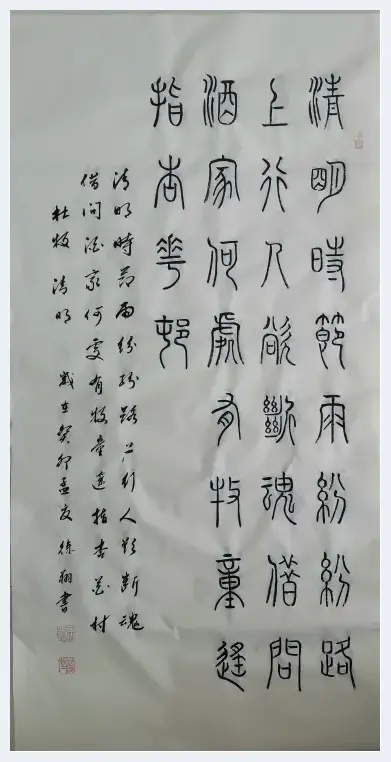 清明時節雨紛紛路
上行人欲斷魂借問
酒家何處有牧童遥
指杏華邨
清明時節雨紛紛路上行人欲斷魂
借問酒家何處有牧童遥指杏花村
杜牧 清明 歲在癸卯孟夏 徐翔書